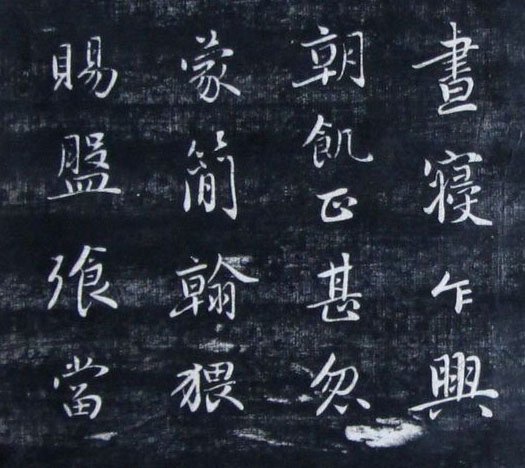 晝寢乍興
朝飢正甚忽
蒙簡翰猥
賜盤飡當